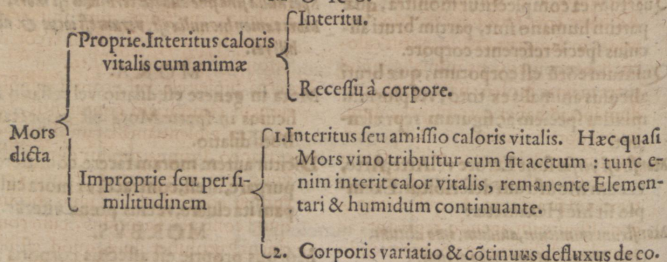 Mors
dicta
Proprie. Interitus caloris
vitalis cum animæ
Interitu.
Recessu à corpore.
Improprie seu per si-
militudinem
1. Interitus seu amissio caloris vitalis. Hæc quasi
Mors vino tribuitur cum fit acetum : tunc e-
nim interit calor vitalis, remanente Elemen-
tari & humidum continuante.
2. Corporis variatio & cõtinuus defluxus de co.